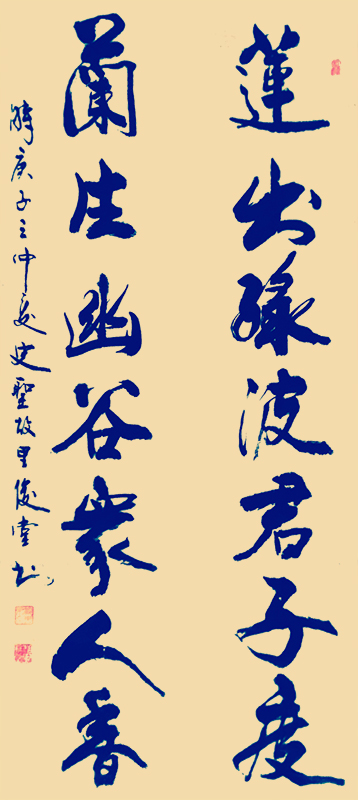 蓮出綠波君子度
蘭生幽谷衆人香
時庚子之仲夏史聖故里俊堂书